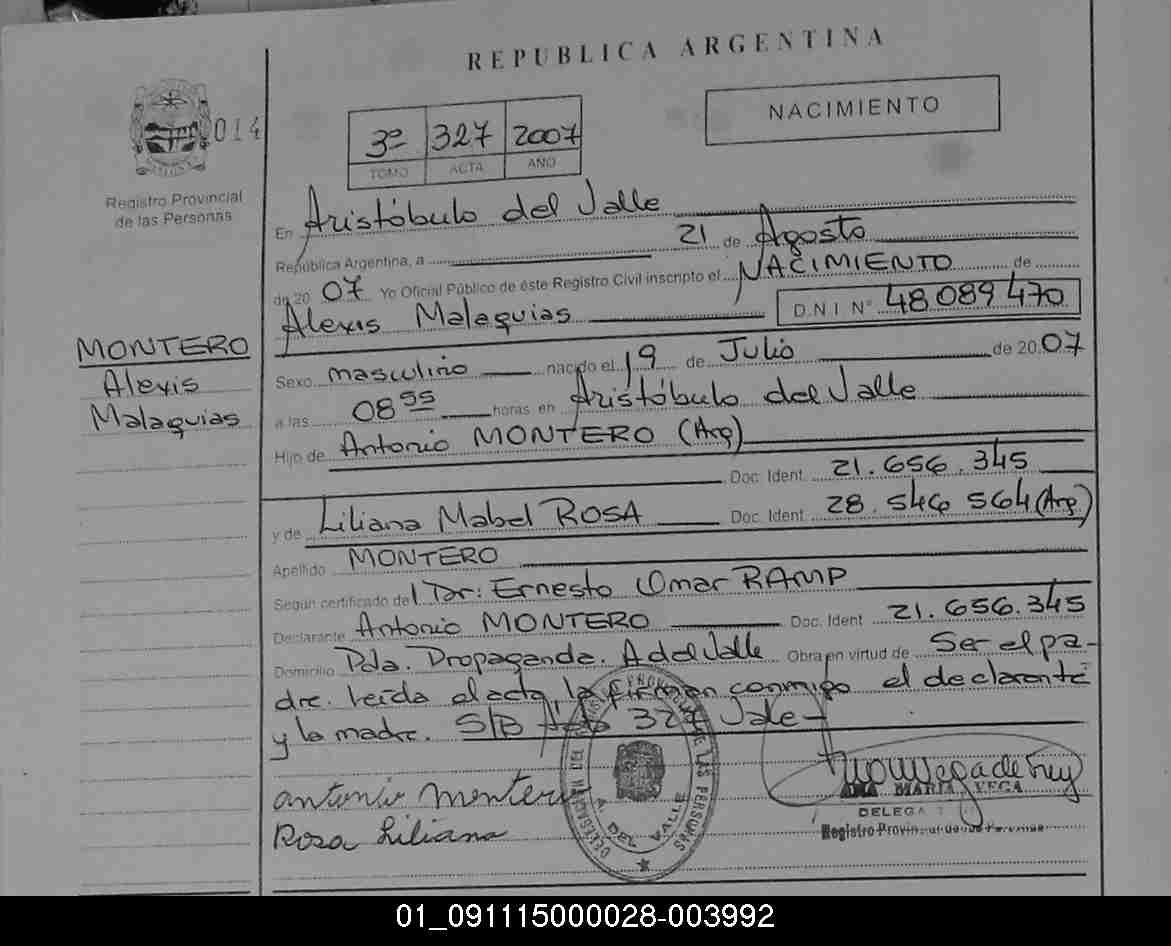 REPUBLICA ARGENTINA
NACIMIENTO
014
3º 327 2007
TOMO ACTA AÑO
Registro Provincial
de las Personas
En Aristóbulo del Valle
República Argentina, a 21 de Agosto
de 20 07 Yo Oficial Público de éste Registro Civil inscripto el NACIMIENTO de
Alexis Malaquias D.N.I Nº 48 089 470
MONTERO
Alexis
Malaquias
Sexo masculino nacido el 19 de Julio de 20 07
a las 08 55 horas en Aristóbulo del Valle
Hijo de Antonio MONTERO (Arg)
Doc. Ident. 21.656.345
y de Liliana Mabel ROSA Doc. Ident. 28.546 564 (Arg)
Apellido MONTERO
Según certificado del Dr: Ernesto Omar RAMP
Declarante Antonio MONTERO Doc. Ident 21.656.345
Domicilio Pda. Propaganda. A del Valle Obra en virtud de Ser el pa-
dre. leída el acta, la firman conmigo el declarante
y la madre. S/B 327 Vale-
antonio montero
Rosa Liliana
DELEGACION DEL REGISTRO PROVINCIAL DE LAS PERSONAS
A. DEL VALLE
ANA MARIA VEGA
DELEGADA
Registro Provincial de las Personas
01_091115000028-003992